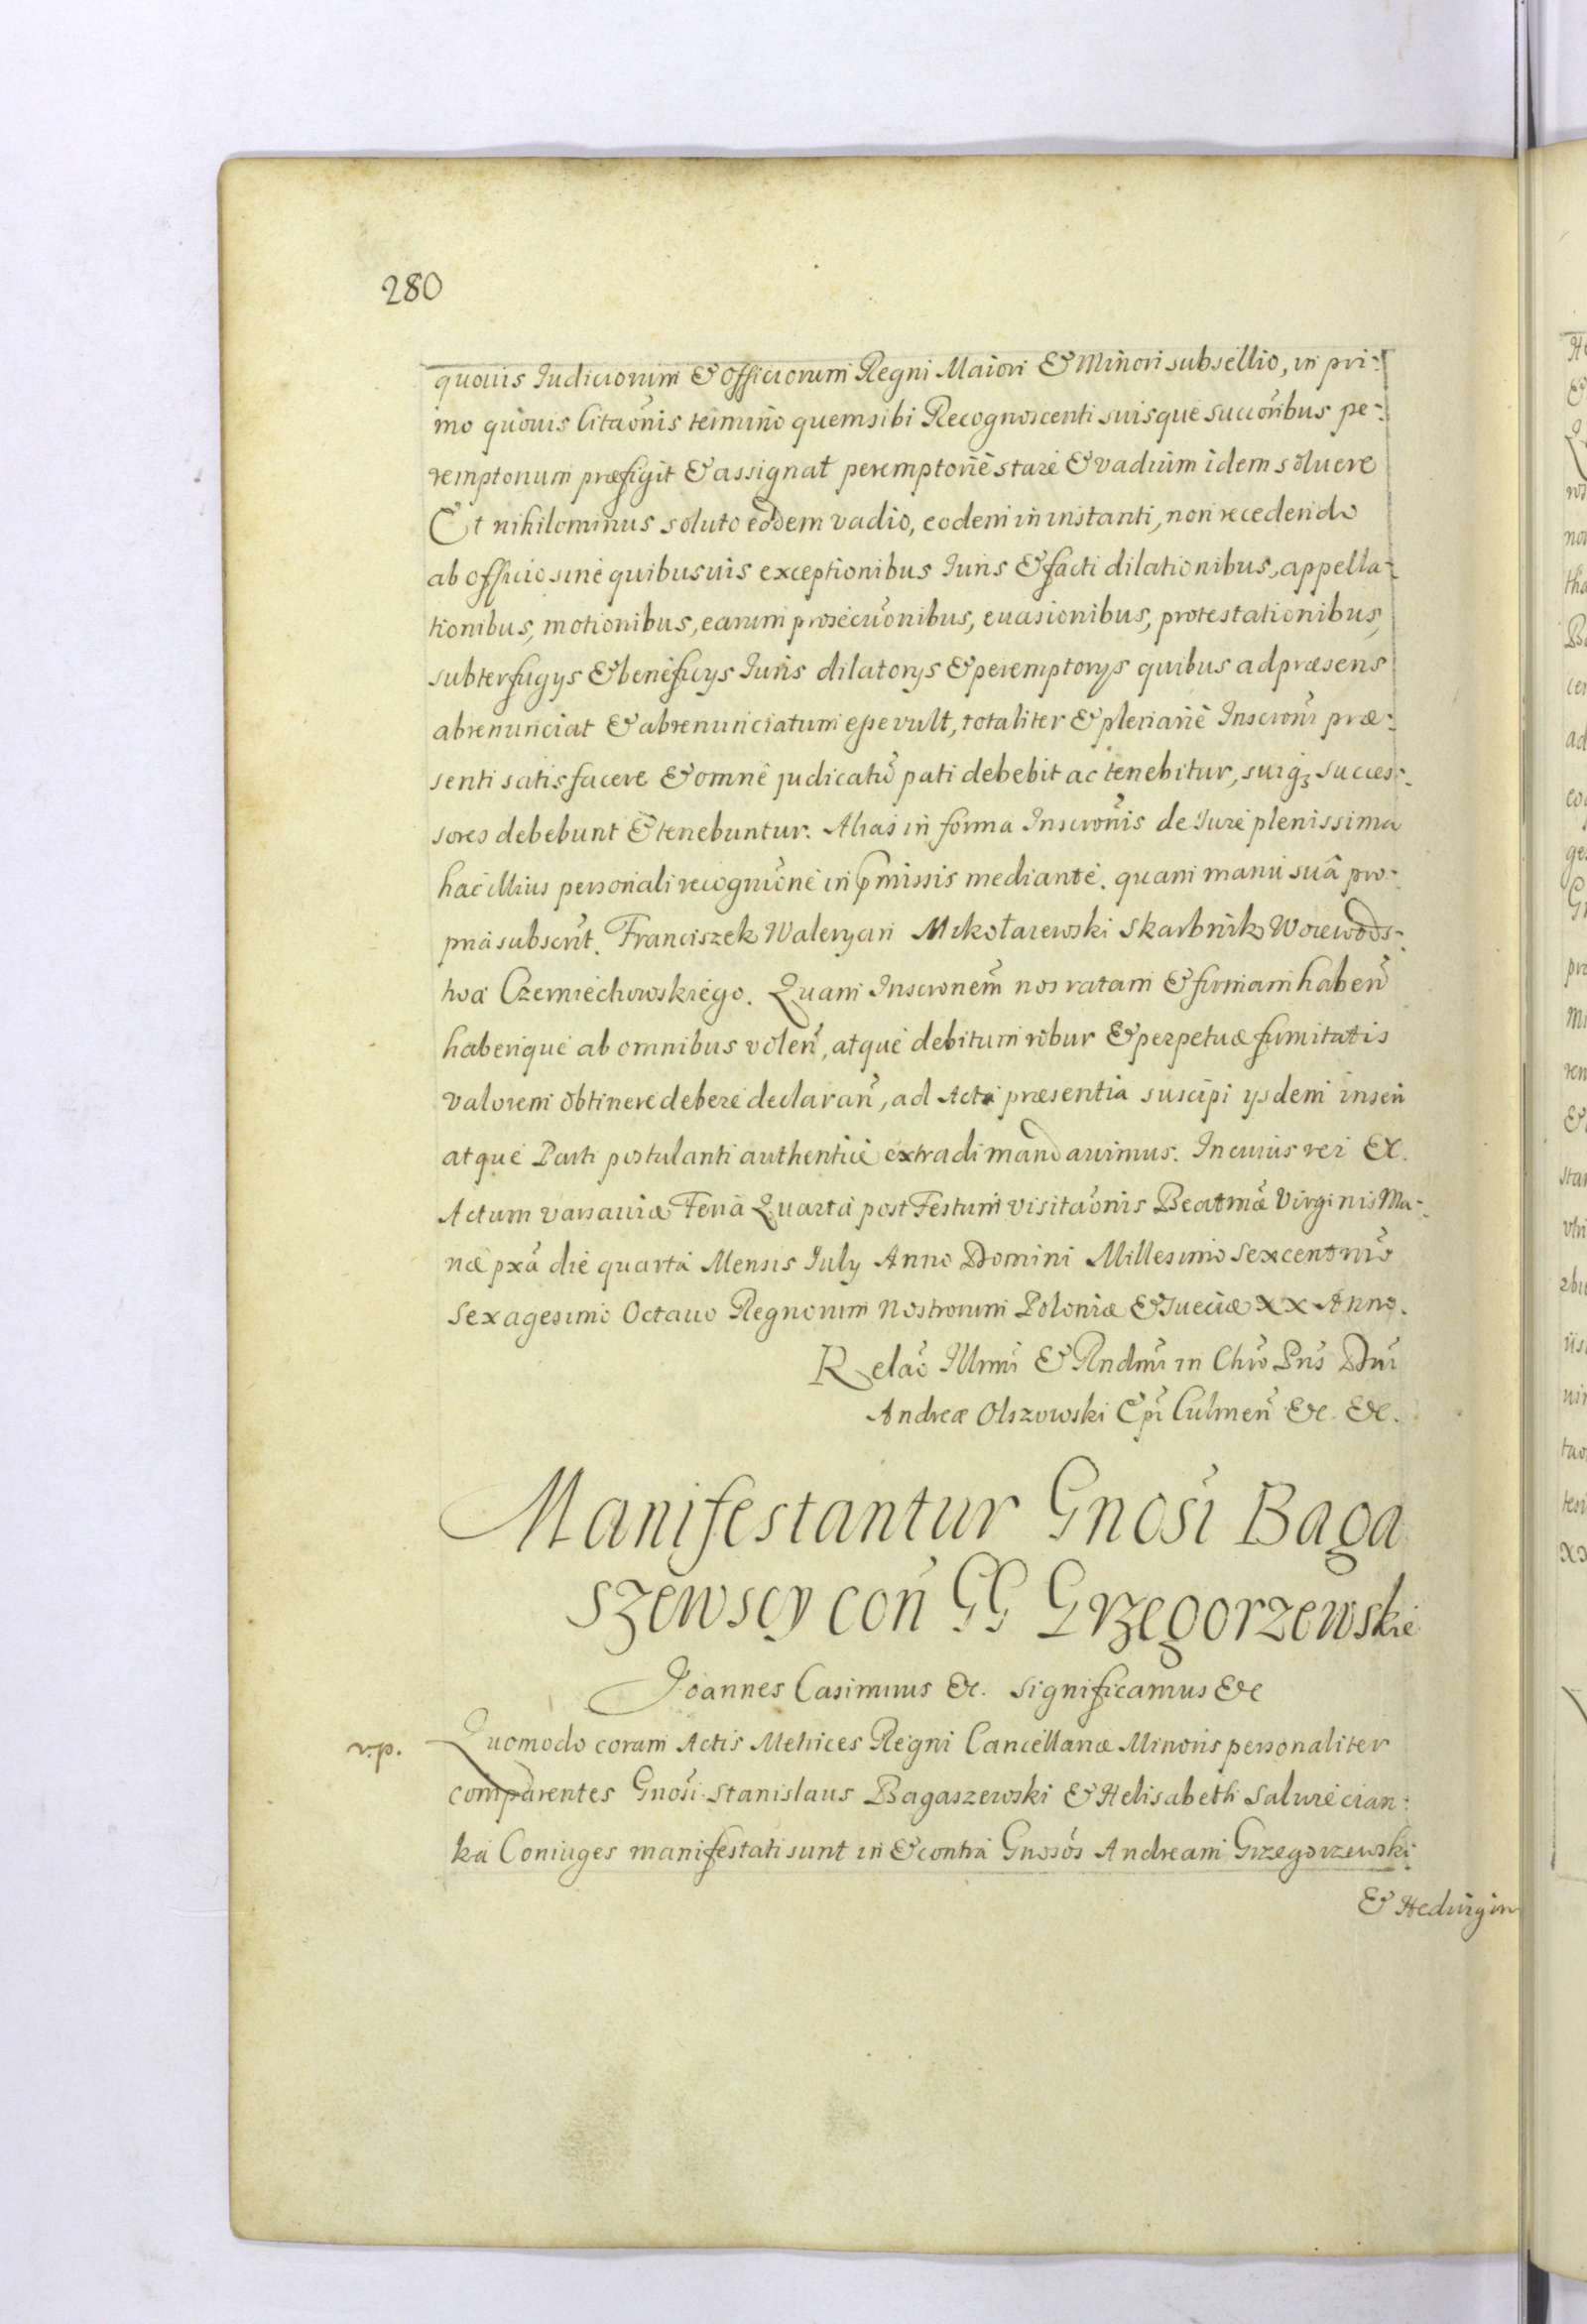 280
quouis Iudiciorum & Officiorum Regni Maiori & Minori subsellio, in pri-
mo quouis Citaõnis termino quem sibi Recognoscenti suisque succõribus pe-
remptorium præfigit & assignat peremptorie stare & vadium idem soluere
Et nihilominus soluto eodem vadio, eodem in instanti, non recedendo
ab officio sine quibusuis exceptionibus Iuris & facti dilationibus, appella-
tionibus, motionibus, earum prosecuõnibus, euasionibus, protestationibus,
subterfugys & beneficys Iuris dilatorys & peremptorys quibus ad præsens
abrenunciat & abrenunciatum esse vult, totaliter & plenarie Inscrõni præ-
senti satisfacere & omnẽ judicatũ pati debebit ac tenebitur, suiq3 succes-
sores debebunt & tenebuntur. Alias in forma Inscrõnis de Iure plenissima
hac illius personali recogniõne in p̃missis mediante. quam manu suâ pro-
pria subscrit. Franciszek Waleryan Mikołaiewski Skarbnik Woiewods-
twa Czerniechowskiego. Quam Inscronem̃ nos ratam & firmam habeñ
haberique ab omnibus voleñ, atque debitum robur & perpetuæ firmitatis
valorem obtinere debere declarañ, ad Acta præsentia suscipi ysdem inseri
atque Parti postulanti authentice extradi mandauimus. In cuius rei &.
Actum varsauiæ Feria Quarta post Festum visitaõnis Beatmæ Virginis Ma-
riæ pxã die quarta Mensis July Anno Domini Millesimo Sexcentmõ
Sexagesimo Octauo Regnorum Nostrorum Poloniæ & Sueciæ XX Anno.
Relaõ Illmi & Rndmi in Chrõ Pris Dni
Andreæ Olszowski Epi Culmeñ &c. &c.
Manifestantur Gnosi Baga
szewscy con GG Grzegorzewskie
Joannes Casimirus &c. significamus &c
v.p.
Quomodo coram Actis Metrices Regni Cancellariæ Minoris personaliter
comparentes Gnosi Stanislaus Bagaszewski & Helisabeth Salwiecian-
ka Coniuges manifestati sunt in & contra Gnosos Andream Grzegorzewski
& Hedwigim